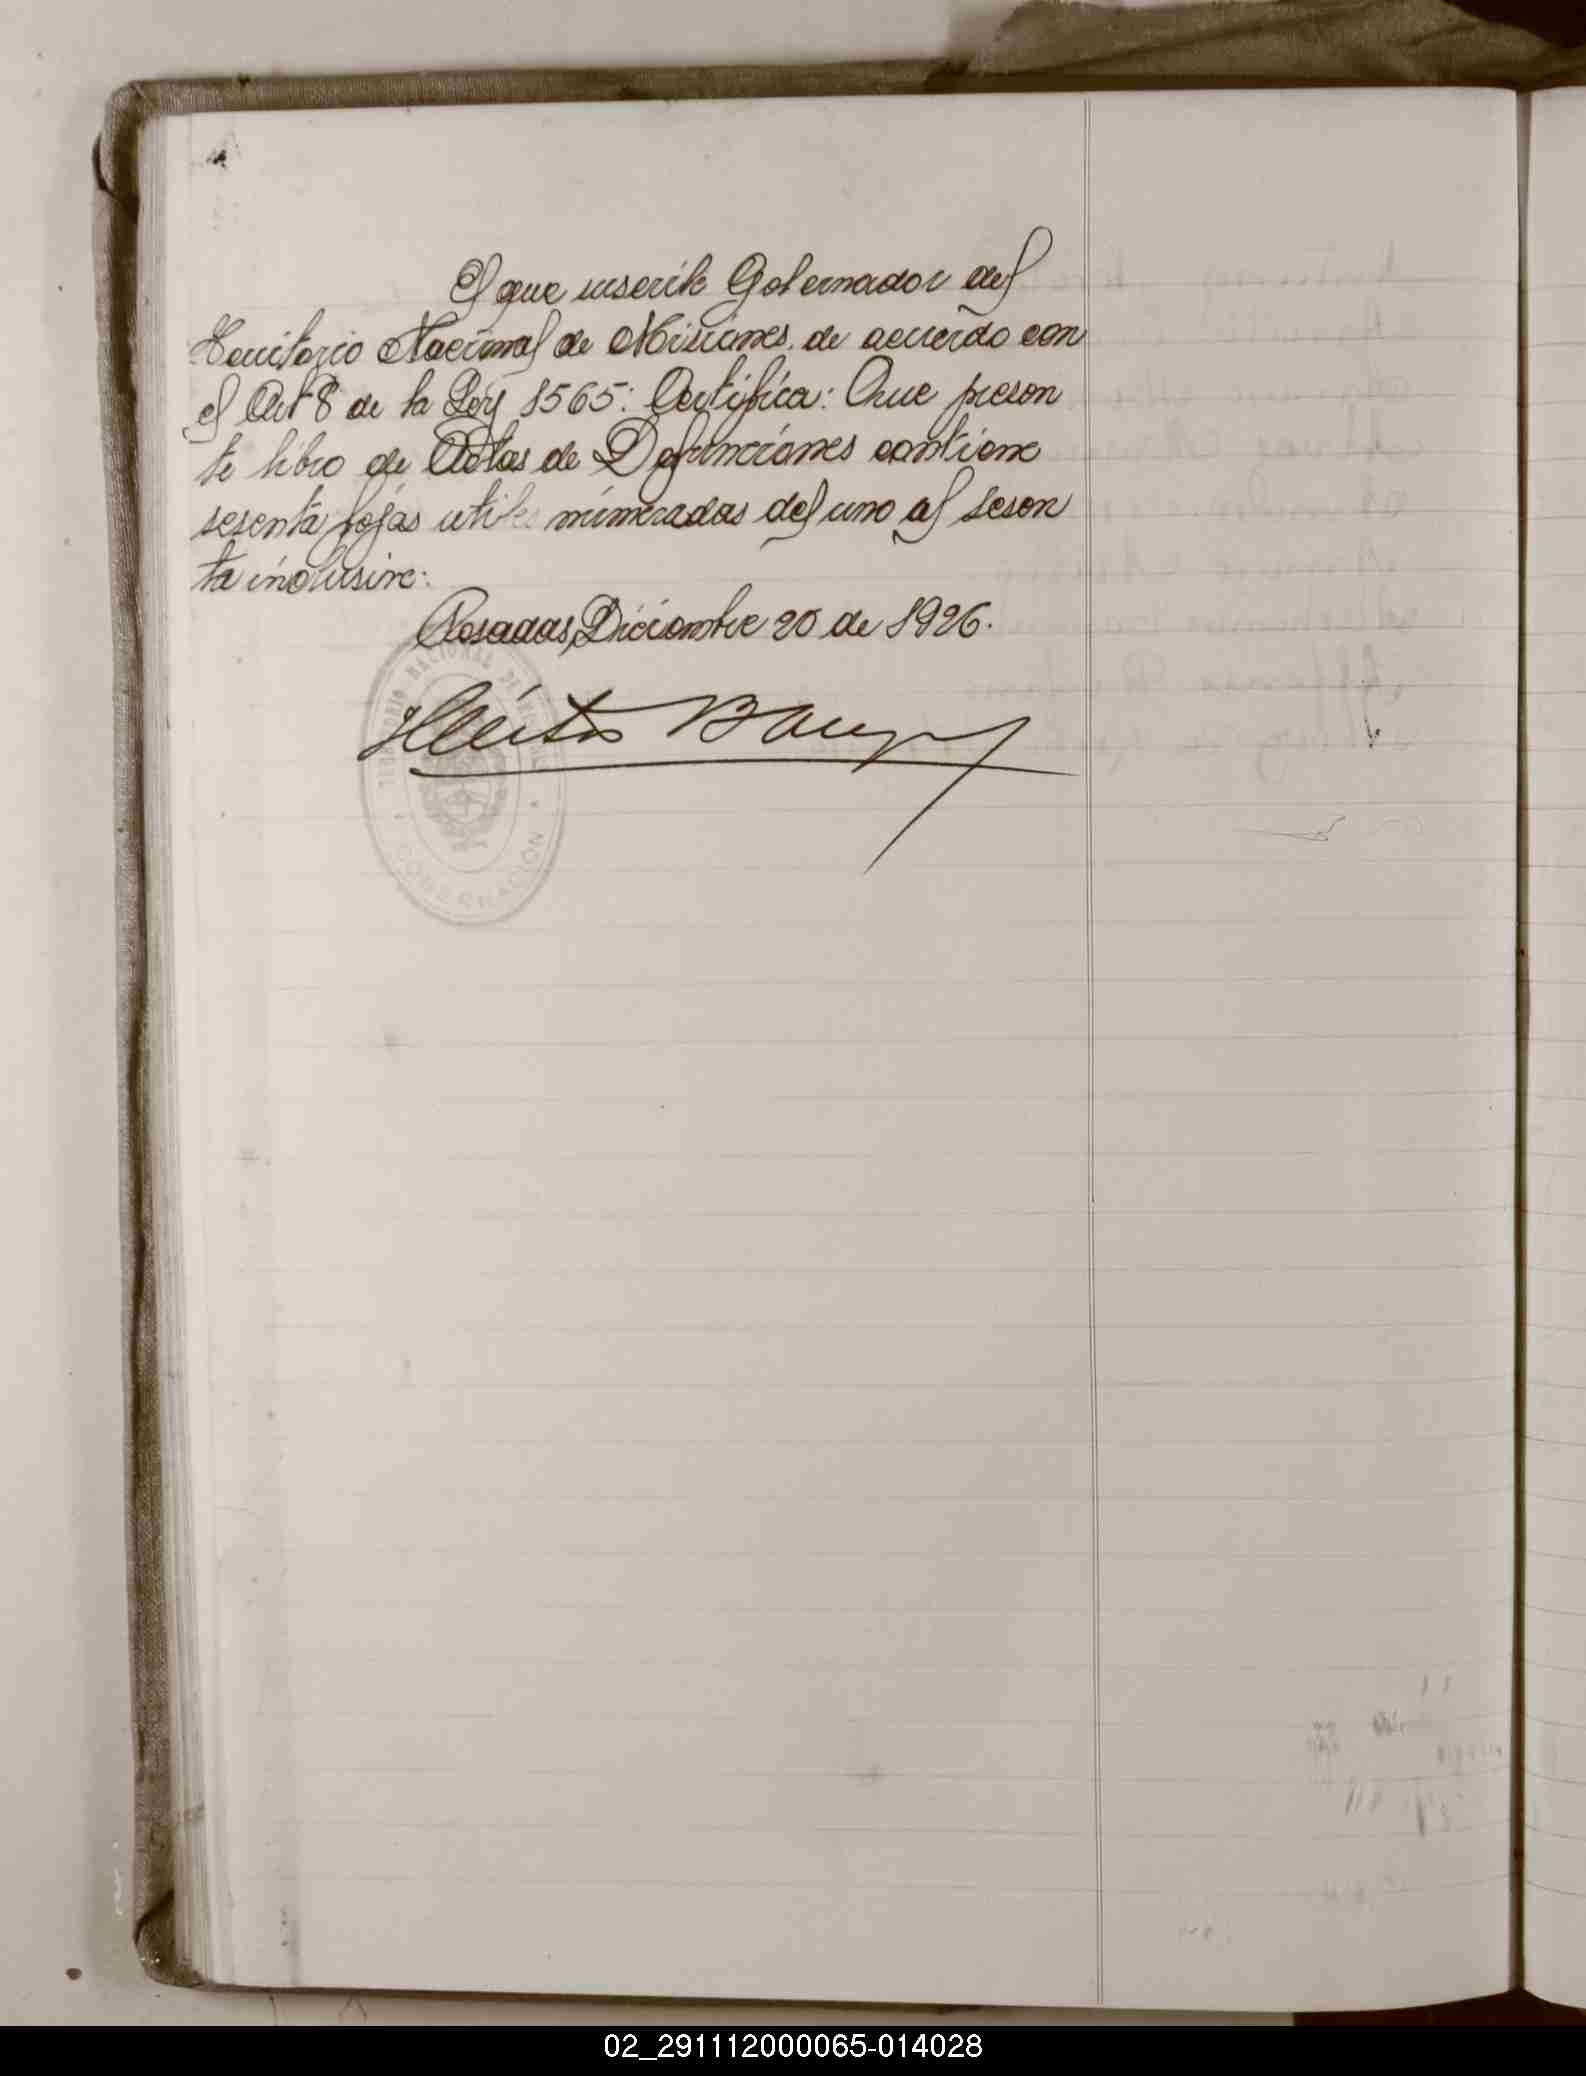 El que suscribe Gobernador del
Territorio Nacional de Misiones, de acuerdo con
el Art 8 de la Ley 1565: Certifica: Que presen
te libro de Actas de Defunciones contiene
sesenta fojas utiles numeradas del uno al sesen
ta inclusive:
Posadas, Diciembre 20 de 1926.
TERRITORIO NACIONAL DE MISIONES
GOBERNACION
02_291112000065-014028